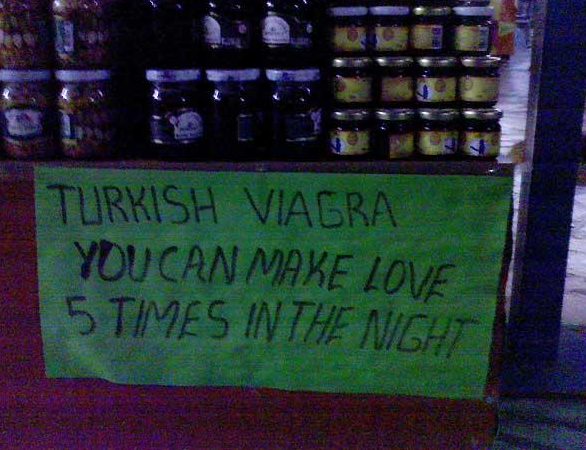 TURKISH VIAGRA
YOU CAN MAKE LOVE
5 TIMES IN THE NIGHT